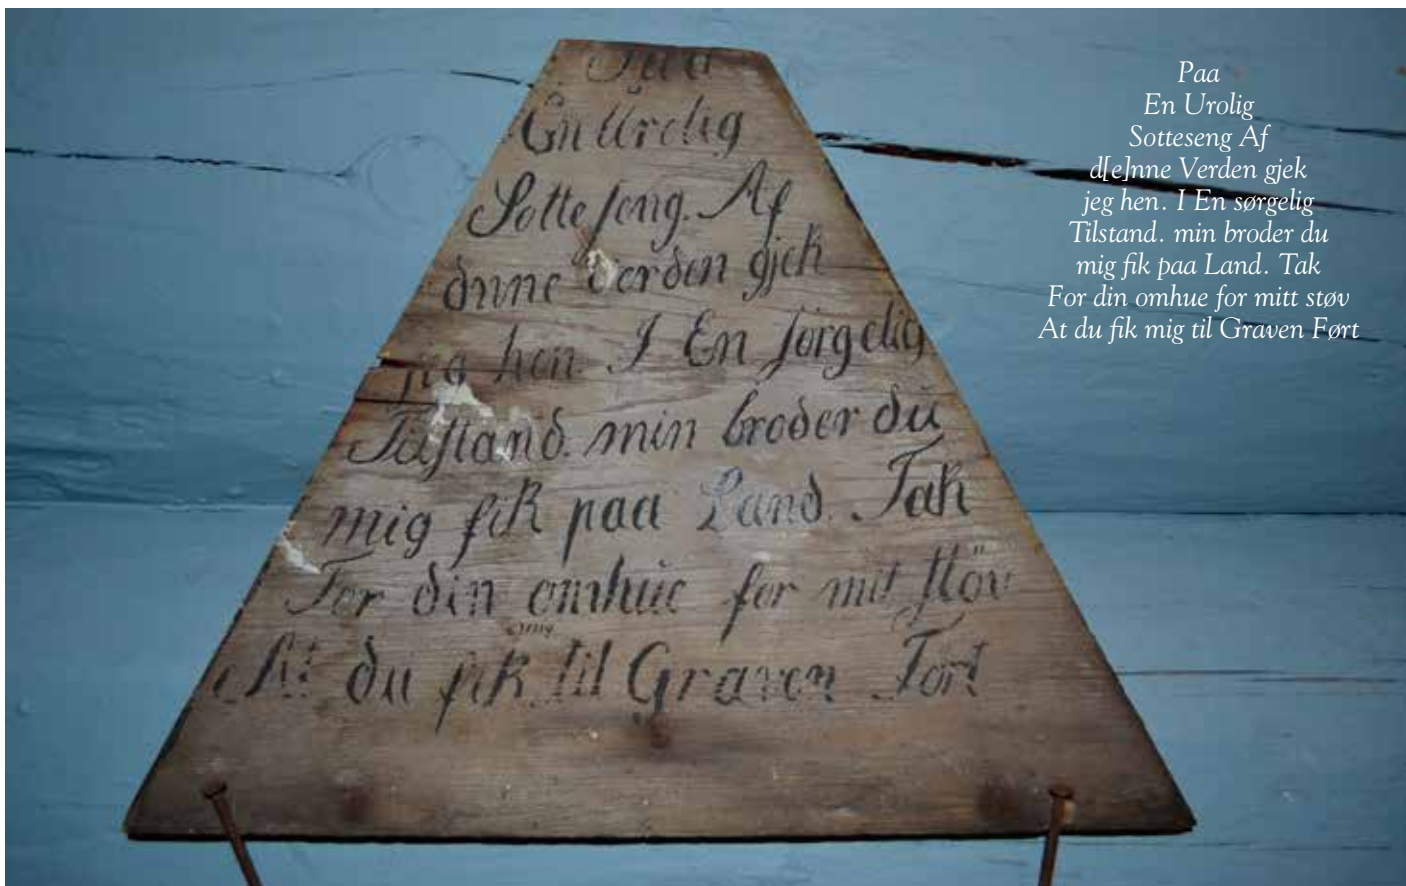 Paa
En Urolig
Sotteseng. Af
dnne Verden gjek
jeg hen. I En sørgelig
Tilstand. min broder du
mig fik paa Land. Tak
For din omhue for mit støv
mig
At du fik til Graven Ført
Paa
En Urolig
Sotteseng Af
d[e]nne Verden gjek
jeg hen. I En sørgelig
Tilstand. min broder du
mig fik paa Land. Tak
For din omhue for mitt støv
At du fik mig til Graven Ført